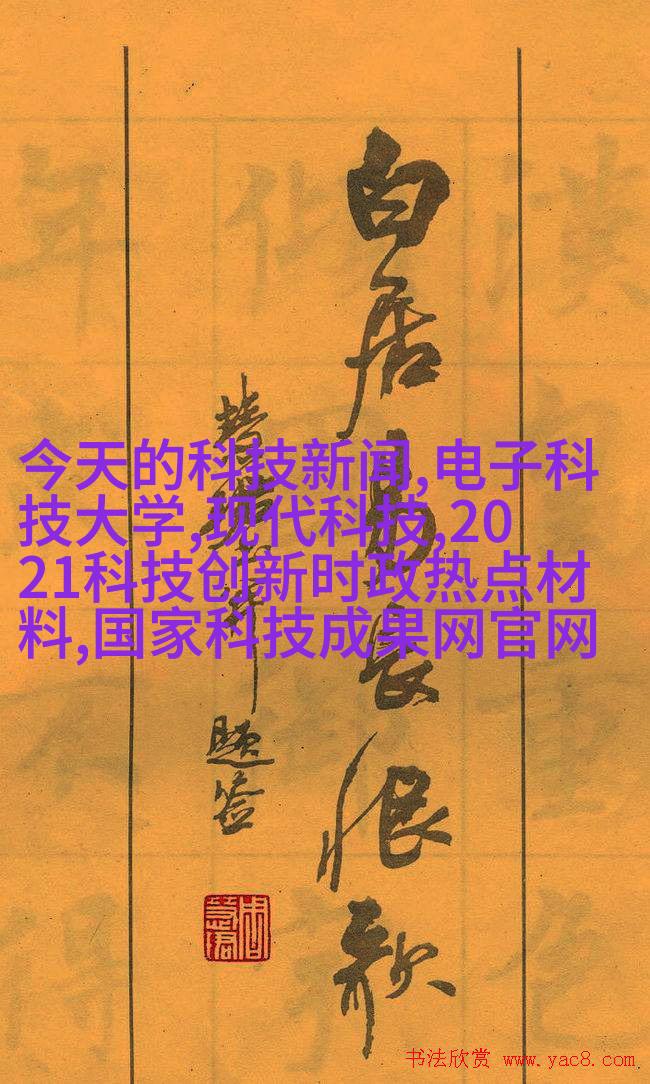 白居易長恨歌
题签
今天的科技新闻,电子科
技大学,现代科技,20
21科技创新时政热点材
料,国家科技成果网官网
书法欣赏 www.yac8.com